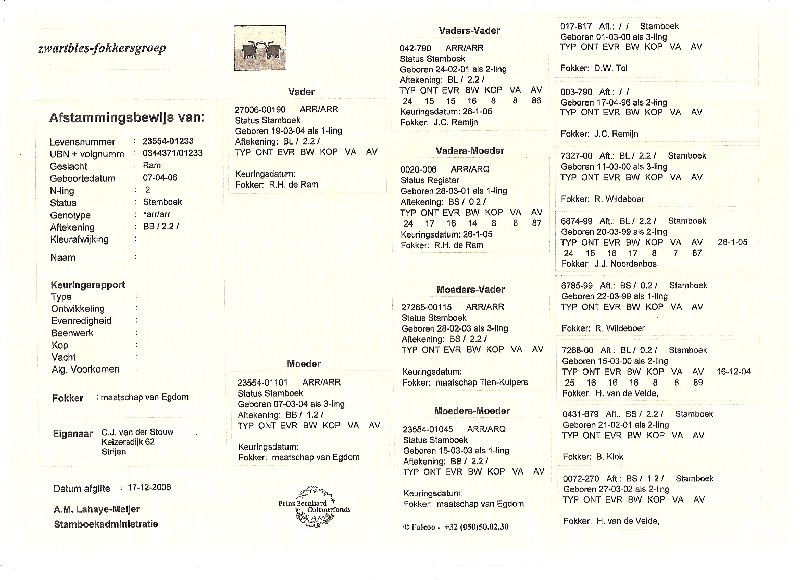 zwartbles-fokkersgroep
Afstammingsbewijs van:
Levensnummer : 23554-01233
UBN + volgnummer : 0344371/01233
Geslacht : Ram
Geboortedatum : 07-04-06
N-ling : 2
Status : Stamboek
Genotype : *arr/arr
Aftekening : BB / 2.2 /
Kleurafwijking :
Naam :
Keuringsrapport
Type :
Ontwikkeling :
Evenredigheid :
Beenwerk :
Kop :
Vacht :
Alg. Voorkomen
Fokker : maatschap van Egdom
Eigenaar : C.J. van der Stouw
Keizersdijk 62
Strijen
Datum afgifte : 17-12-2006
A.M. Lahaye-Meijer
Stamboekadministratie
Vader
27006-00190 ARR/ARR
Status Stamboek
Geboren 19-03-04 als 1-ling
Aftekening: BL / 2.2 /
TYP ONT EVR BW KOP VA AV
Keuringsdatum:
Fokker: R.H. de Ram
Moeder
23554-01101 ARR/ARR
Status Stamboek
Geboren 07-03-04 als 3-ling
Aftekening: BB / 1.2 /
TYP ONT EVR BW KOP VA AV
Keuringsdatum:
Fokker: maatschap van Egdom
Prins Bernhard Cultuurfonds
Vaders-Vader
042-790 ARR/ARR
Status Stamboek
Geboren 24-02-01 als 2-ling
Aftekening: BL / 2.2 /
TYP ONT EVR BW KOP VA AV
24 15 15 16 8 8 86
Keuringsdatum: 26-1-05
Fokker: J.C. Remijn
Vaders-Moeder
0020-006 ARR/ARQ
Status Register
Geboren 28-03-01 als 1-ling
Aftekening: BS / 0.2 /
TYP ONT EVR BW KOP VA AV
24 17 16 14 8 8 87
Keuringsdatum: 26-1-05
Fokker: R.H. de Ram
Moeders-Vader
27265-00115 ARR/ARR
Status Stamboek
Geboren 28-02-03 als 3-ling
Aftekening: BS / 2.2 /
TYP ONT EVR BW KOP VA AV
Keuringsdatum:
Fokker: maatschap Tien-Kuipers
Moeders-Moeder
23554-01045 ARR/ARQ
Status Stamboek
Geboren 15-03-03 als 1-ling
Aftekening: BB / 2.2 /
TYP ONT EVR BW KOP VA AV
Keuringsdatum:
Fokker: maatschap van Egdom
© Falcoo - +32 (050)50.02.30
017-617 Aft.: / / Stamboek
Geboren 01-03-00 als 3-ling
TYP ONT EVR BW KOP VA AV
Fokker: D.W. Tol
003-790 Aft.: / /
Geboren 17-04-96 als 2-ling
TYP ONT EVR BW KOP VA AV
Fokker: J.C. Remijn
7327-00 Aft.: BL / 2.2 / Stamboek
Geboren 11-03-00 als 3-ling
TYP ONT EVR BW KOP VA AV
Fokker: R. Wildeboer
6874-99 Aft.: BL / 2.2 / Stamboek
Geboren 20-03-99 als 2-ling
TYP ONT EVR BW KOP VA AV 26-1-05
24 15 16 17 8 7 87
Fokker: J.J. Noordenbos
6785-99 Aft.: BS / 0.2 / Stamboek
Geboren 22-03-99 als 1-ling
TYP ONT EVR BW KOP VA AV
Fokker: R. Wildeboer
7268-00 Aft.: BL / 0.2 / Stamboek
Geboren 15-03-00 als 2-ling
TYP ONT EVR BW KOP VA AV 16-12-04
25 16 16 16 8 8 89
Fokker: H. van de Velde,
0431-679 Aft.: BS / 2.2 / Stamboek
Geboren 21-02-01 als 2-ling
TYP ONT EVR BW KOP VA AV
Fokker: B. Klok
0072-270 Aft.: BS / 1.2 / Stamboek
Geboren 27-03-02 als 2-ling
TYP ONT EVR BW KOP VA AV
Fokker: H. van de Velde,